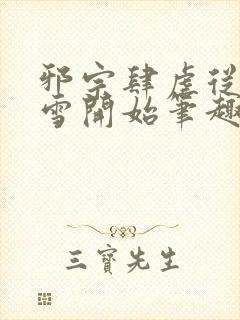 邪宗肆虐從
雪開始筆趣
三寶先生